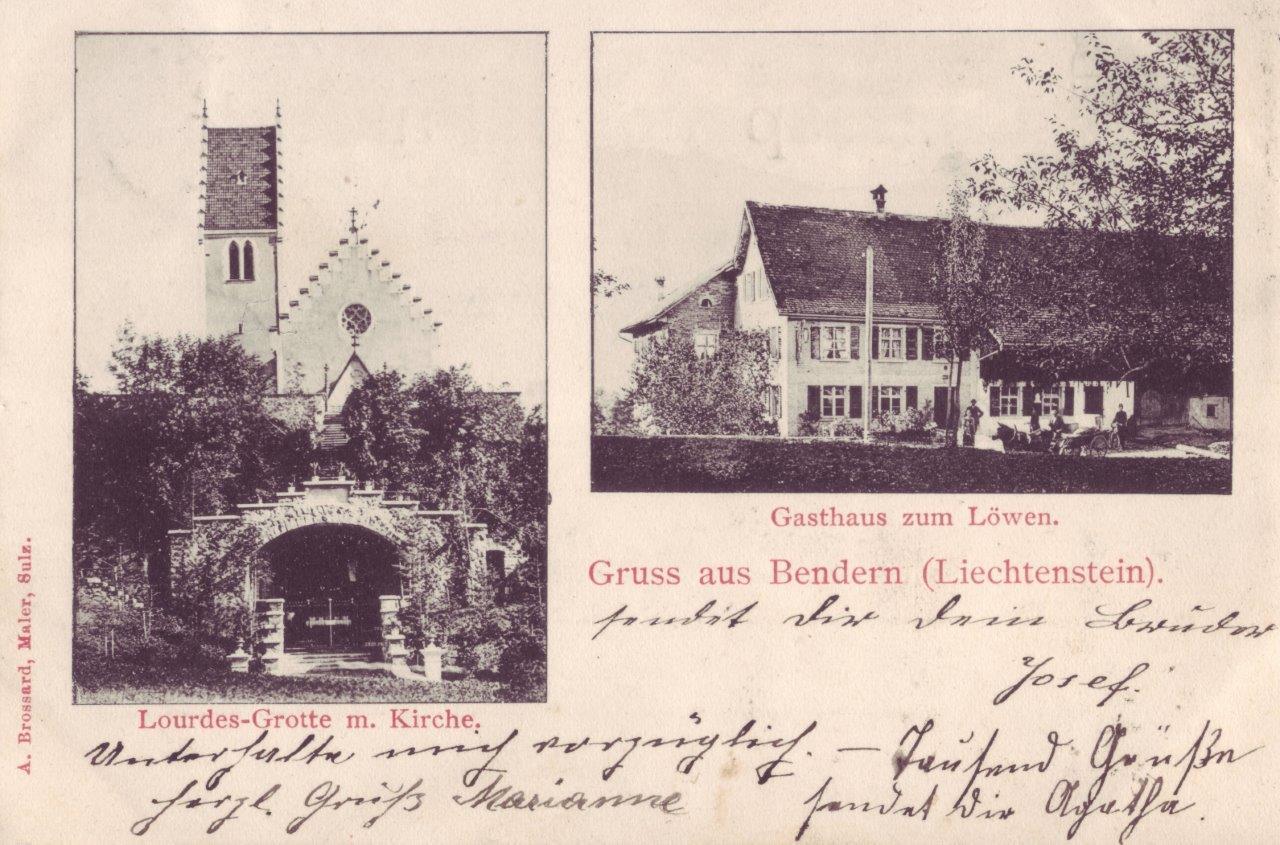 Gasthaus zum Löwen.
Gruss aus Bendern (Liechtenstein).
sendet Dir dein Bruder
Josef.
Lourdes-Grotte m. Kirche.
Unterhalte mich vorzüglich. – Tausend Grüße
herzl. Gruß Marianne
sendet Dir Agatha.
A. Brossard, Maler, Sulz.